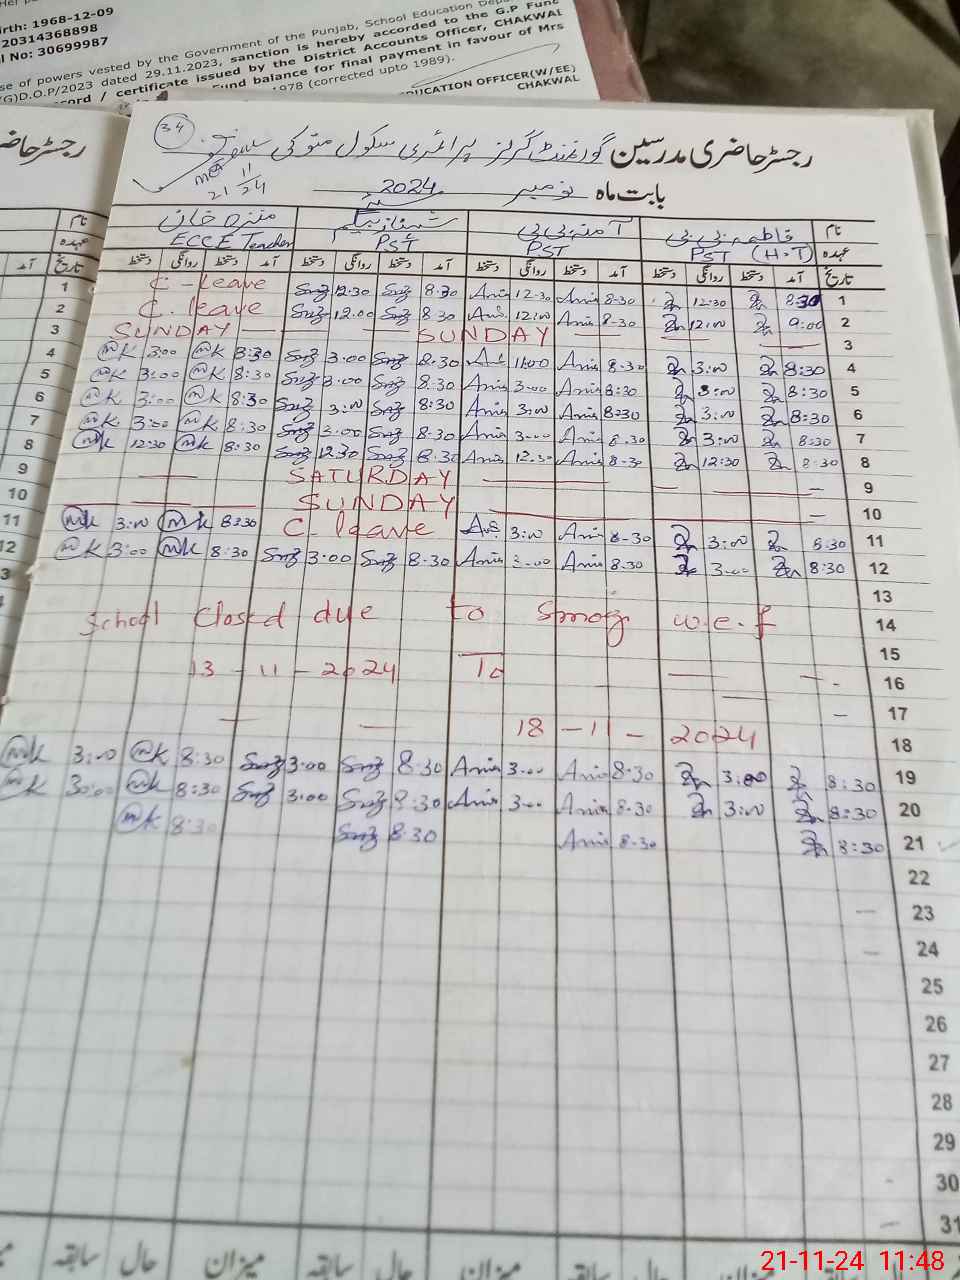 irth: 1968-12-09
20314368898
l No: 30699987
se of powers vested by the Government of the Punjab, School Education Depa
(G)D.O.P/2023 dated 29.11.2023, sanction is hereby accorded to the G.P Fund
cord / certificate issued by the District Accounts Officer, CHAKWAL
Fund balance for final payment in favour of Mrs
1978 (corrected upto 1989).
DUCATION OFFICER(W/EE)
CHAKWAL
34
رجسٹر حاضری مدرسین گورنمنٹ گرلز پرائمری سکول
11
21 24
بابت ماہ نومبر 2024
نام فاطمہ بی بی آمنہ بی بی شہناز بیگم منزہ خان
عہدہ PST (H.T) PST PST ECCE Teacher
تاریخ آمد دستخط روانگی دستخط آمد دستخط روانگی دستخط آمد دستخط روانگی دستخط آمد دستخط روانگی دستخط
C-leave 12.30 8.30 12.30 8-30 12:30 8:30 1
C.leave 12.00 8.30 12:00 8-30 12:00 9:00 2
SUNDAY SUNDAY 3
MK 3:00 MK 8:30 3.00 8.30 11:00 8.30 3:00 8:30 4
MK 3:00 MK 8:30 3.00 8.30 3.00 8:30 3:00 8:30 5
MK 3:00 MK 8:30 3:00 8:30 3:00 8:30 3:00 8:30 6
MK 3:00 MK 8:30 3.00 8.30 3.00 8.30 3:00 8:30 7
MK 12:30 MK 8:30 12.30 8.30 12.30 8-30 12:30 8:30 8
SATURDAY 9
SUNDAY 10
MK 3:00 MK 8:30 C.leave 3:00 8-30 3:00 8:30 11
MK 3:00 MK 8:30 3:00 8.30 3.00 8.30 3.00 8:30 12
13
School Closed due to Smog w.e.f 14
15
13-11-2024 To 16
17
18-11-2024 18
MK 3:00 MK 8:30 3.00 8.30 3.00 8.30 3.00 8:30 19
MK 3:00 MK 8:30 3.00 8.30 3.00 8.30 3:00 8:30 20
MK 8:30 8.30 8.30 8:30 21
22
23
24
25
26
27
28
29
30
31
میزان حال سابقہ میزان حال سابقہ میزان حال سابقہ
21-11-24 11:48